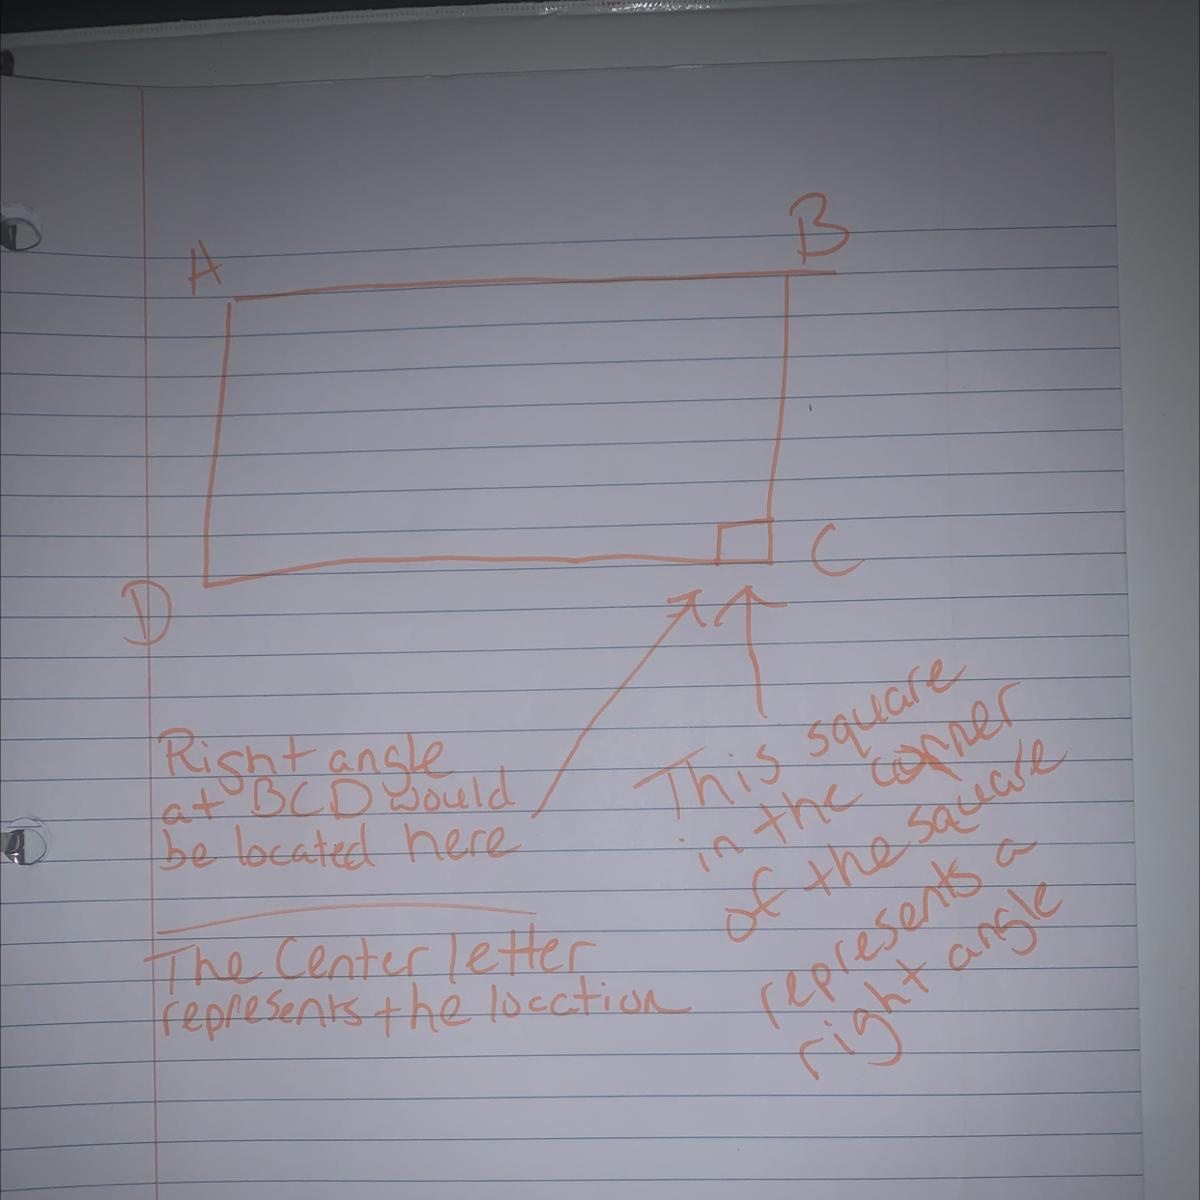 A
B
C
D
Right angle
at BCD would
be located here
The Center letter
represents the location
This square
in the corner
of the square
represents a
right angle